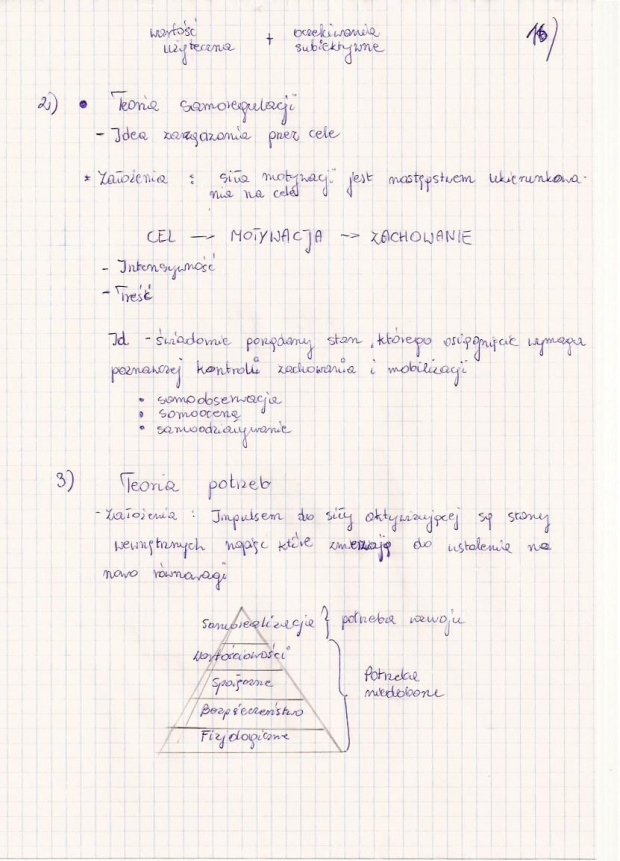 wartość + oczekiwania 16)
użyteczna subiektywne
2) • Teoria samoregulacji
- Idea zarządzania przez cele
* Założenia : siła motywacji jest następstwem ukierunkowa-
nia na cele
CEL → MOTYWACJA → ZACHOWANIE
- Intensywność
- Treść
- świadomie pożądany stan, którego osiągnięcie wymaga
poznawczej kontroli zachowania i mobilizacji
• samoobserwacja
• samoocena
• samoodziaływanie
3) Teoria potrzeb
- Założenia : Impulsem do siły aktywizującej są stany
wewnętrznych napięć które zmierzają do ustalenia na
nowo równowagi
Samorealizacja } potrzeba rozwoju
Wartościowości
Społeczne
Potrzeba
niedoboru
Bezpieczeństwo
Fizjologiczne